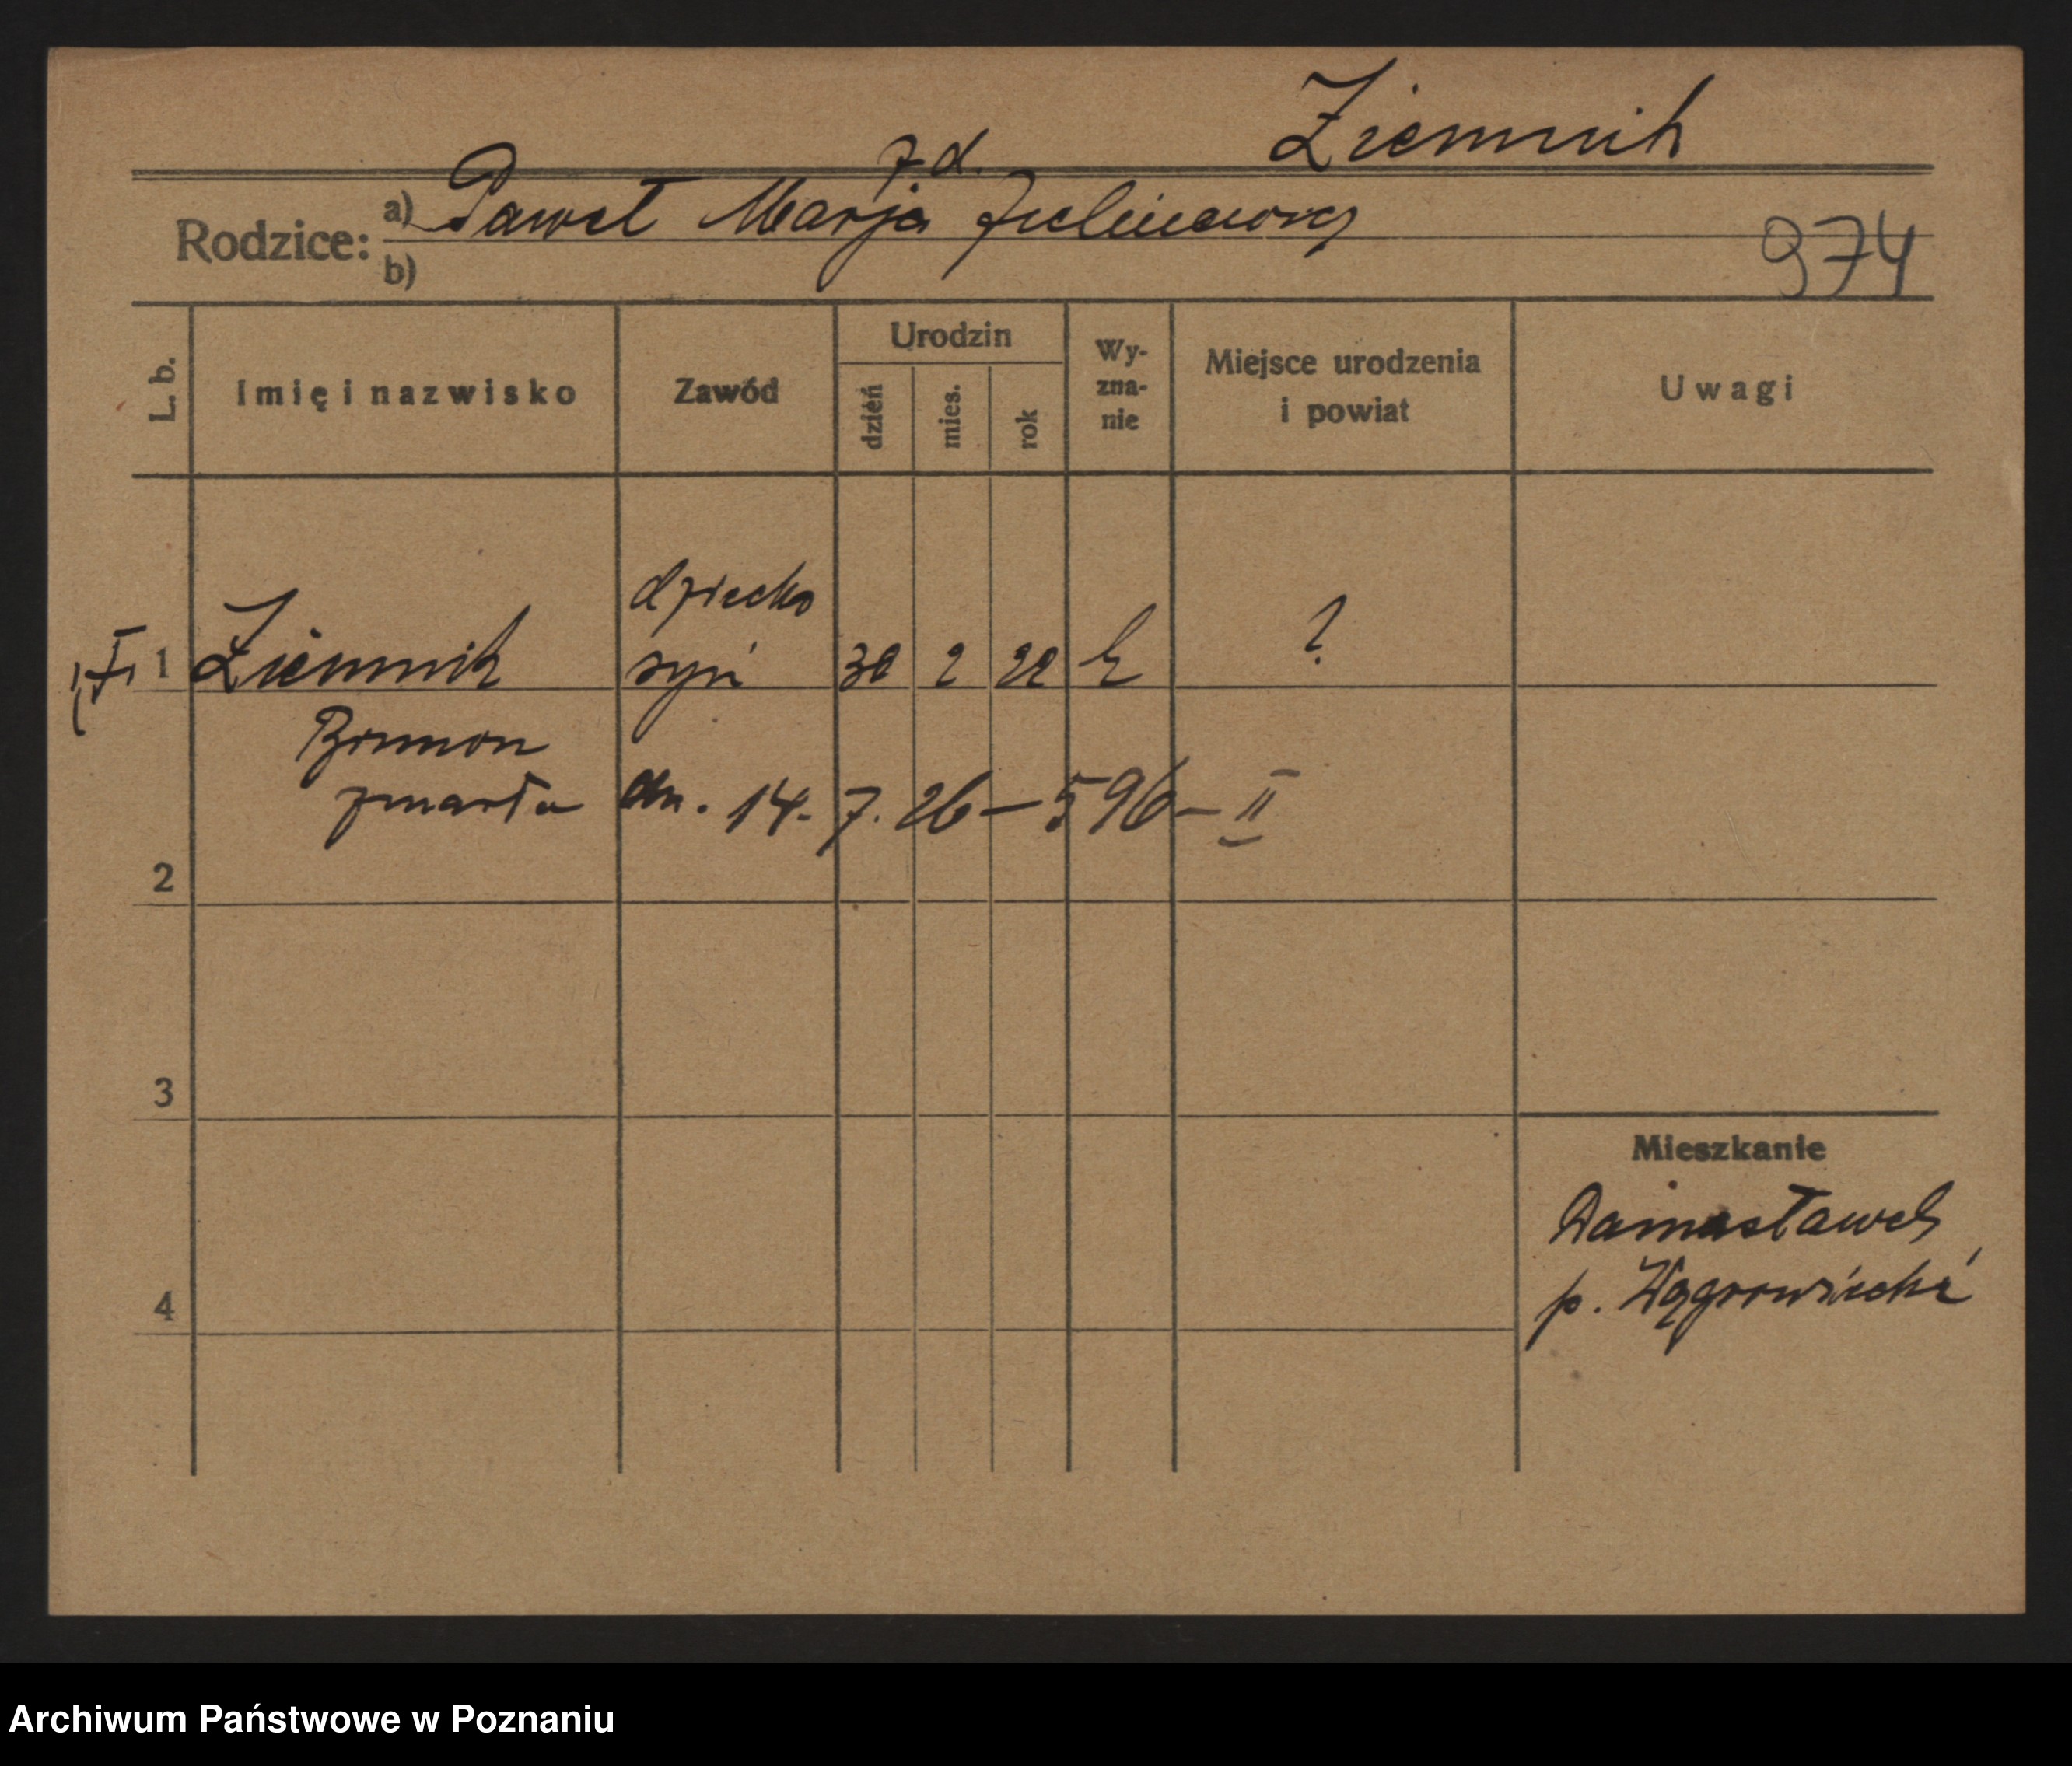 Ziemnik
zd.
Rodzice: a) Paweł Marja
b)
974
L. b.
Imię i nazwisko
Zawód
Urodzin
dzień
mies.
rok
Wy-
zna-
nie
Miejsce urodzenia
i powiat
Uwagi
dziecko
1 Ziemnik syn 30 2 22 k ?
Brunon
zmarła dn. 14. 7. 26 – 596 – II
2
3
4
Mieszkanie
Damasławek
p. Wągrowiecki
Archiwum Państwowe w Poznaniu